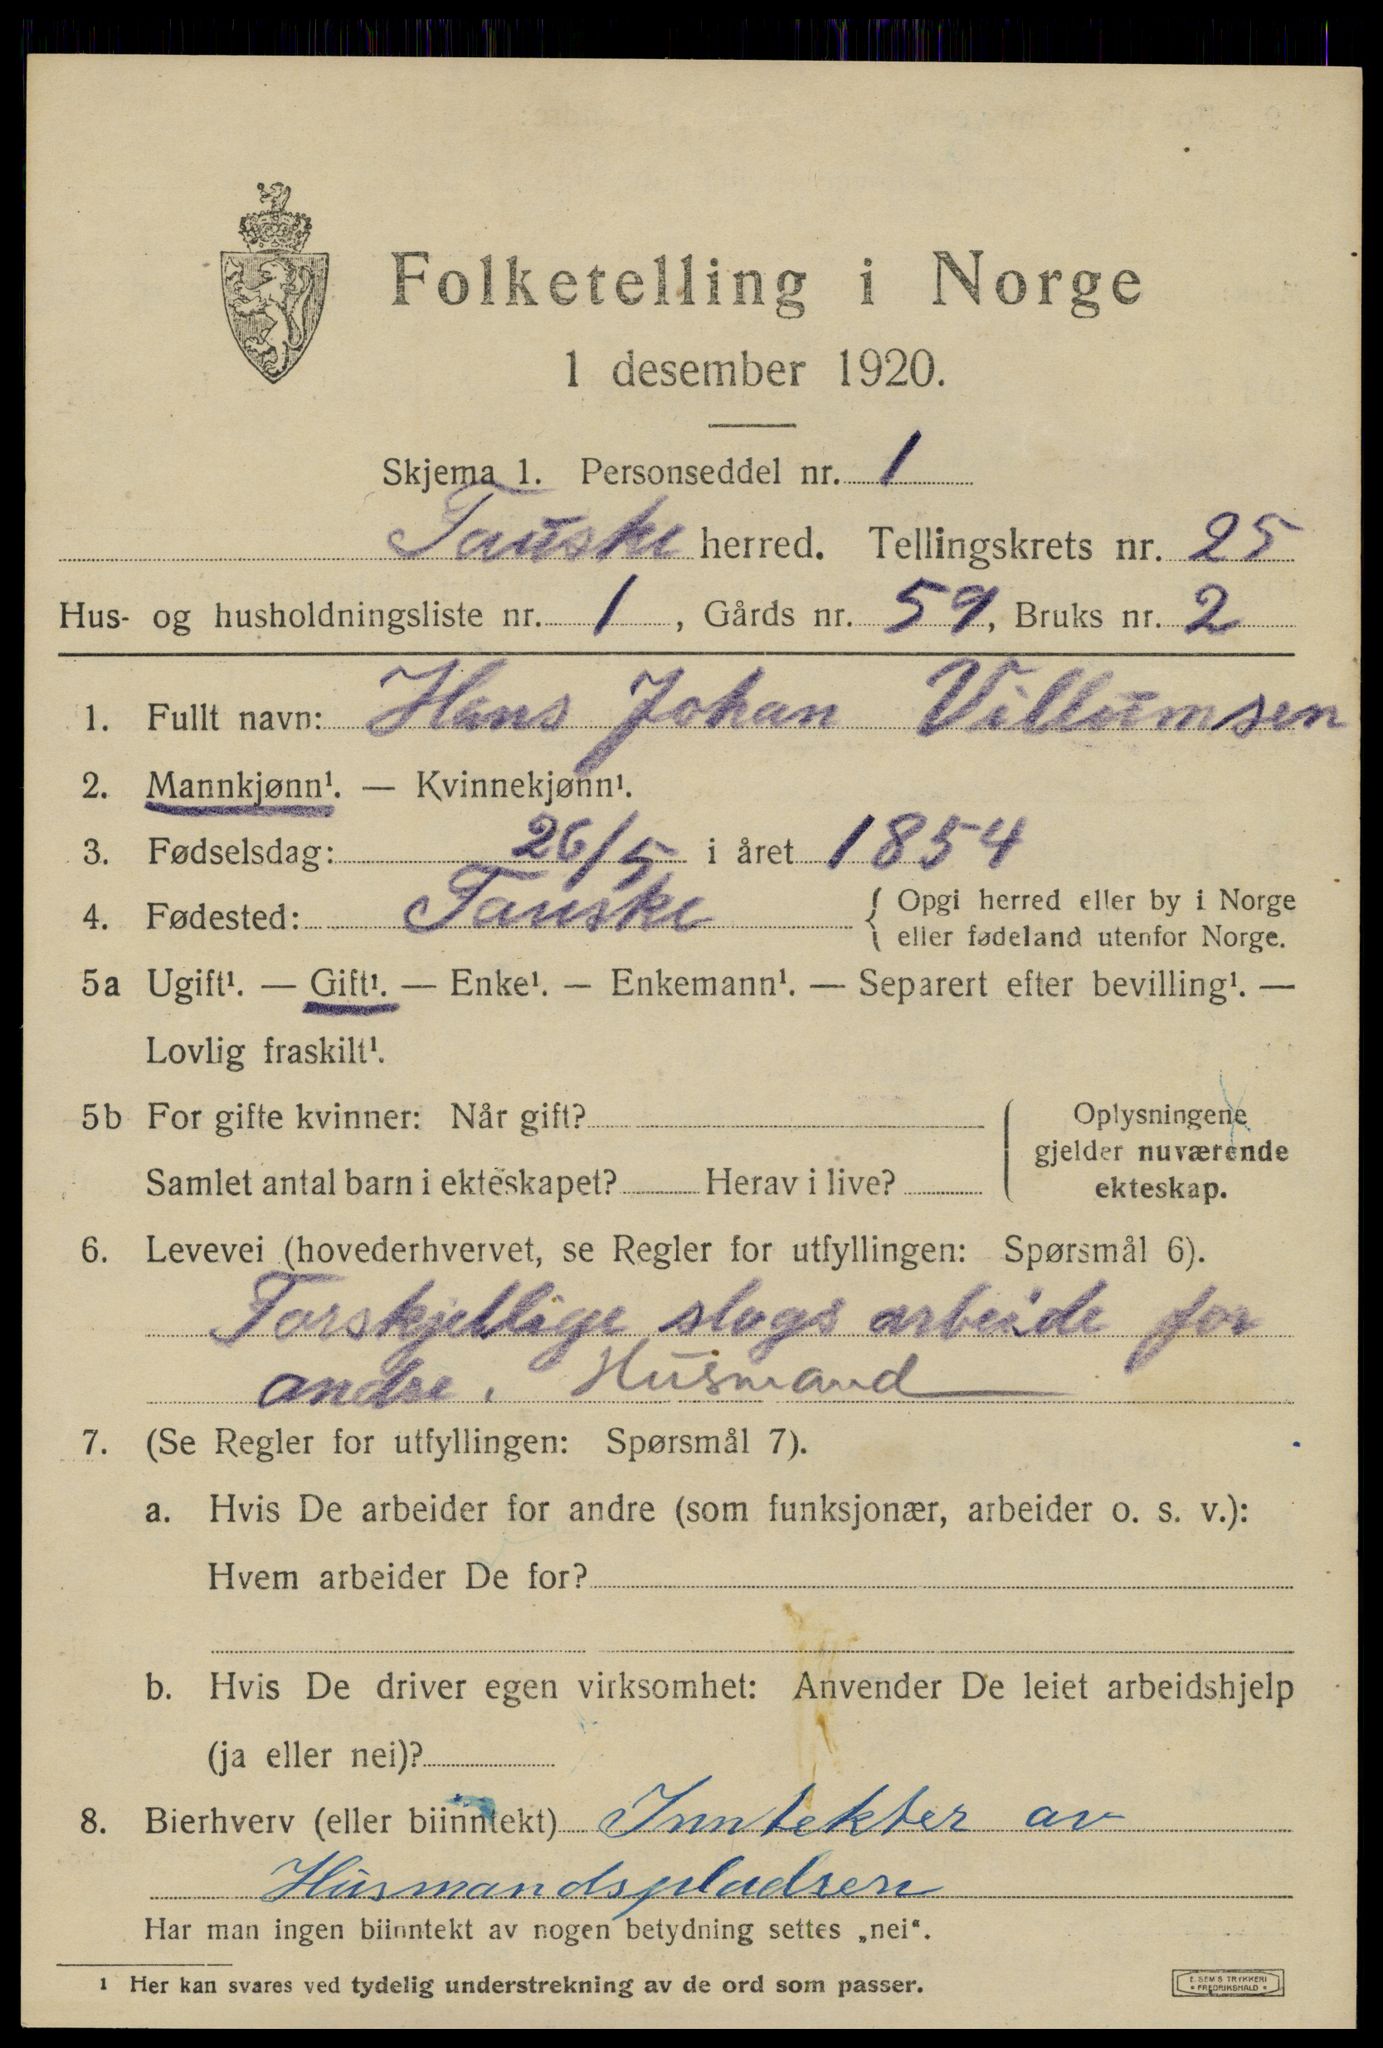 Folketelling i Norge
1 desember 1920.
Skjema 1. Personseddel nr. 1
Fauske herred. Tellingskrets nr. 25
Hus- og husholdningsliste nr. 1, Gårds nr. 59, Bruks nr. 2
1. Fullt navn: Hans Johan Villumsen
2. Mannkjønn¹. — Kvinnekjønn¹.
3. Fødselsdag: 26/5 i året 1854
4. Fødested: Fauske { Opgi herred eller by i Norge
eller fødeland utenfor Norge.
5a Ugift¹. — Gift¹. — Enke¹. — Enkemann¹. — Separert efter bevilling¹. —
Lovlig fraskilt¹.
5b For gifte kvinner: Når gift? Oplysningene
gjelder nuværende
Samlet antal barn i ekteskapet? Herav i live? ekteskap.
6. Levevei (hovederhvervet, se Regler for utfyllingen: Spørsmål 6).
Forskjellige slags arbeide for
andre. Husmand
7. (Se Regler for utfyllingen: Spørsmål 7).
a. Hvis De arbeider for andre (som funksjonær, arbeider o. s. v.):
Hvem arbeider De for?
b. Hvis De driver egen virksomhet: Anvender De leiet arbeidshjelp
(ja eller nei)?
8. Bierhverv (eller biinntekt) Inntekter av
Husmandspladsen
Har man ingen biinntekt av nogen betydning settes „nei“.
¹ Her kan svares ved tydelig understrekning av de ord som passer.
E. SEM'S TRYKKERI
* FREDRIKSHALD *